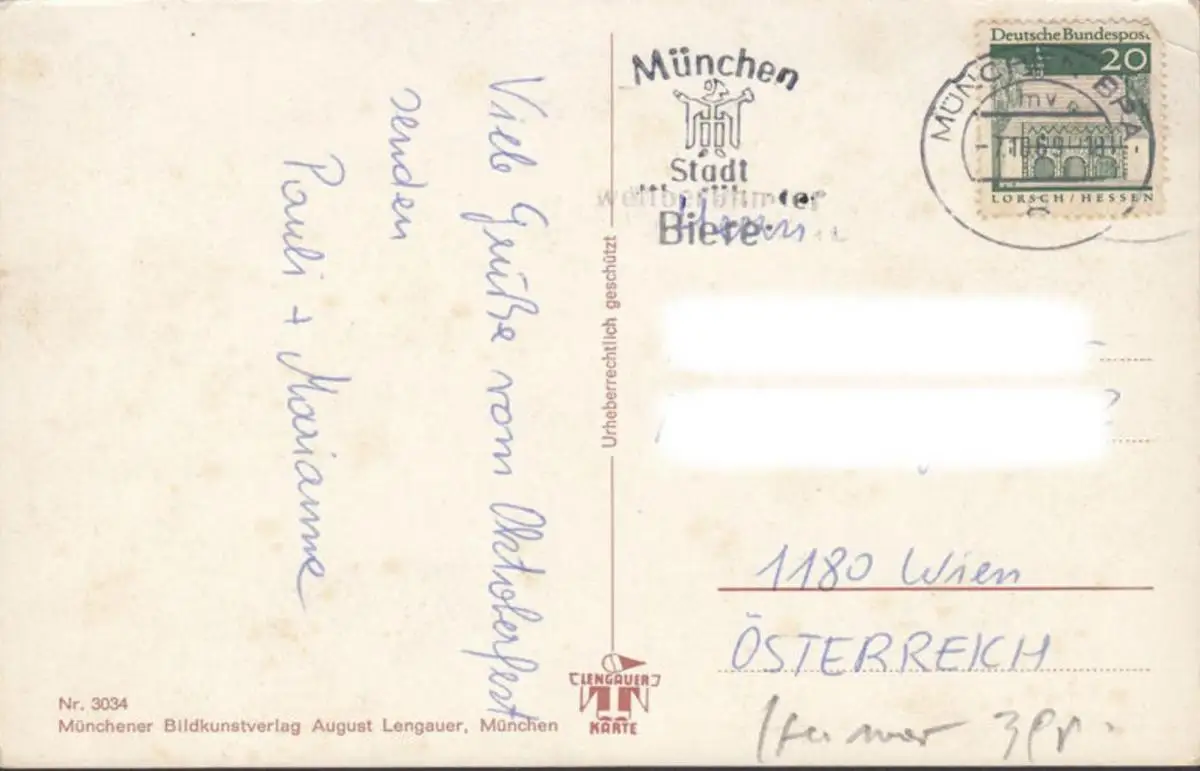 Viele Grüße vom Oktoberfest
senden
Pauli + Marianne
Nr. 3034
Münchener Bildkunstverlag August Lengauer, München
Urheberrechtlich geschützt
LENGAUER
KARTE
München
Stadt
weltberühmter
Biere
Deutsche Bundespost
20
LORSCH/HESSEN
MÜNCHEN BPA
Herrn
1180 Wien
ÖSTERREICH